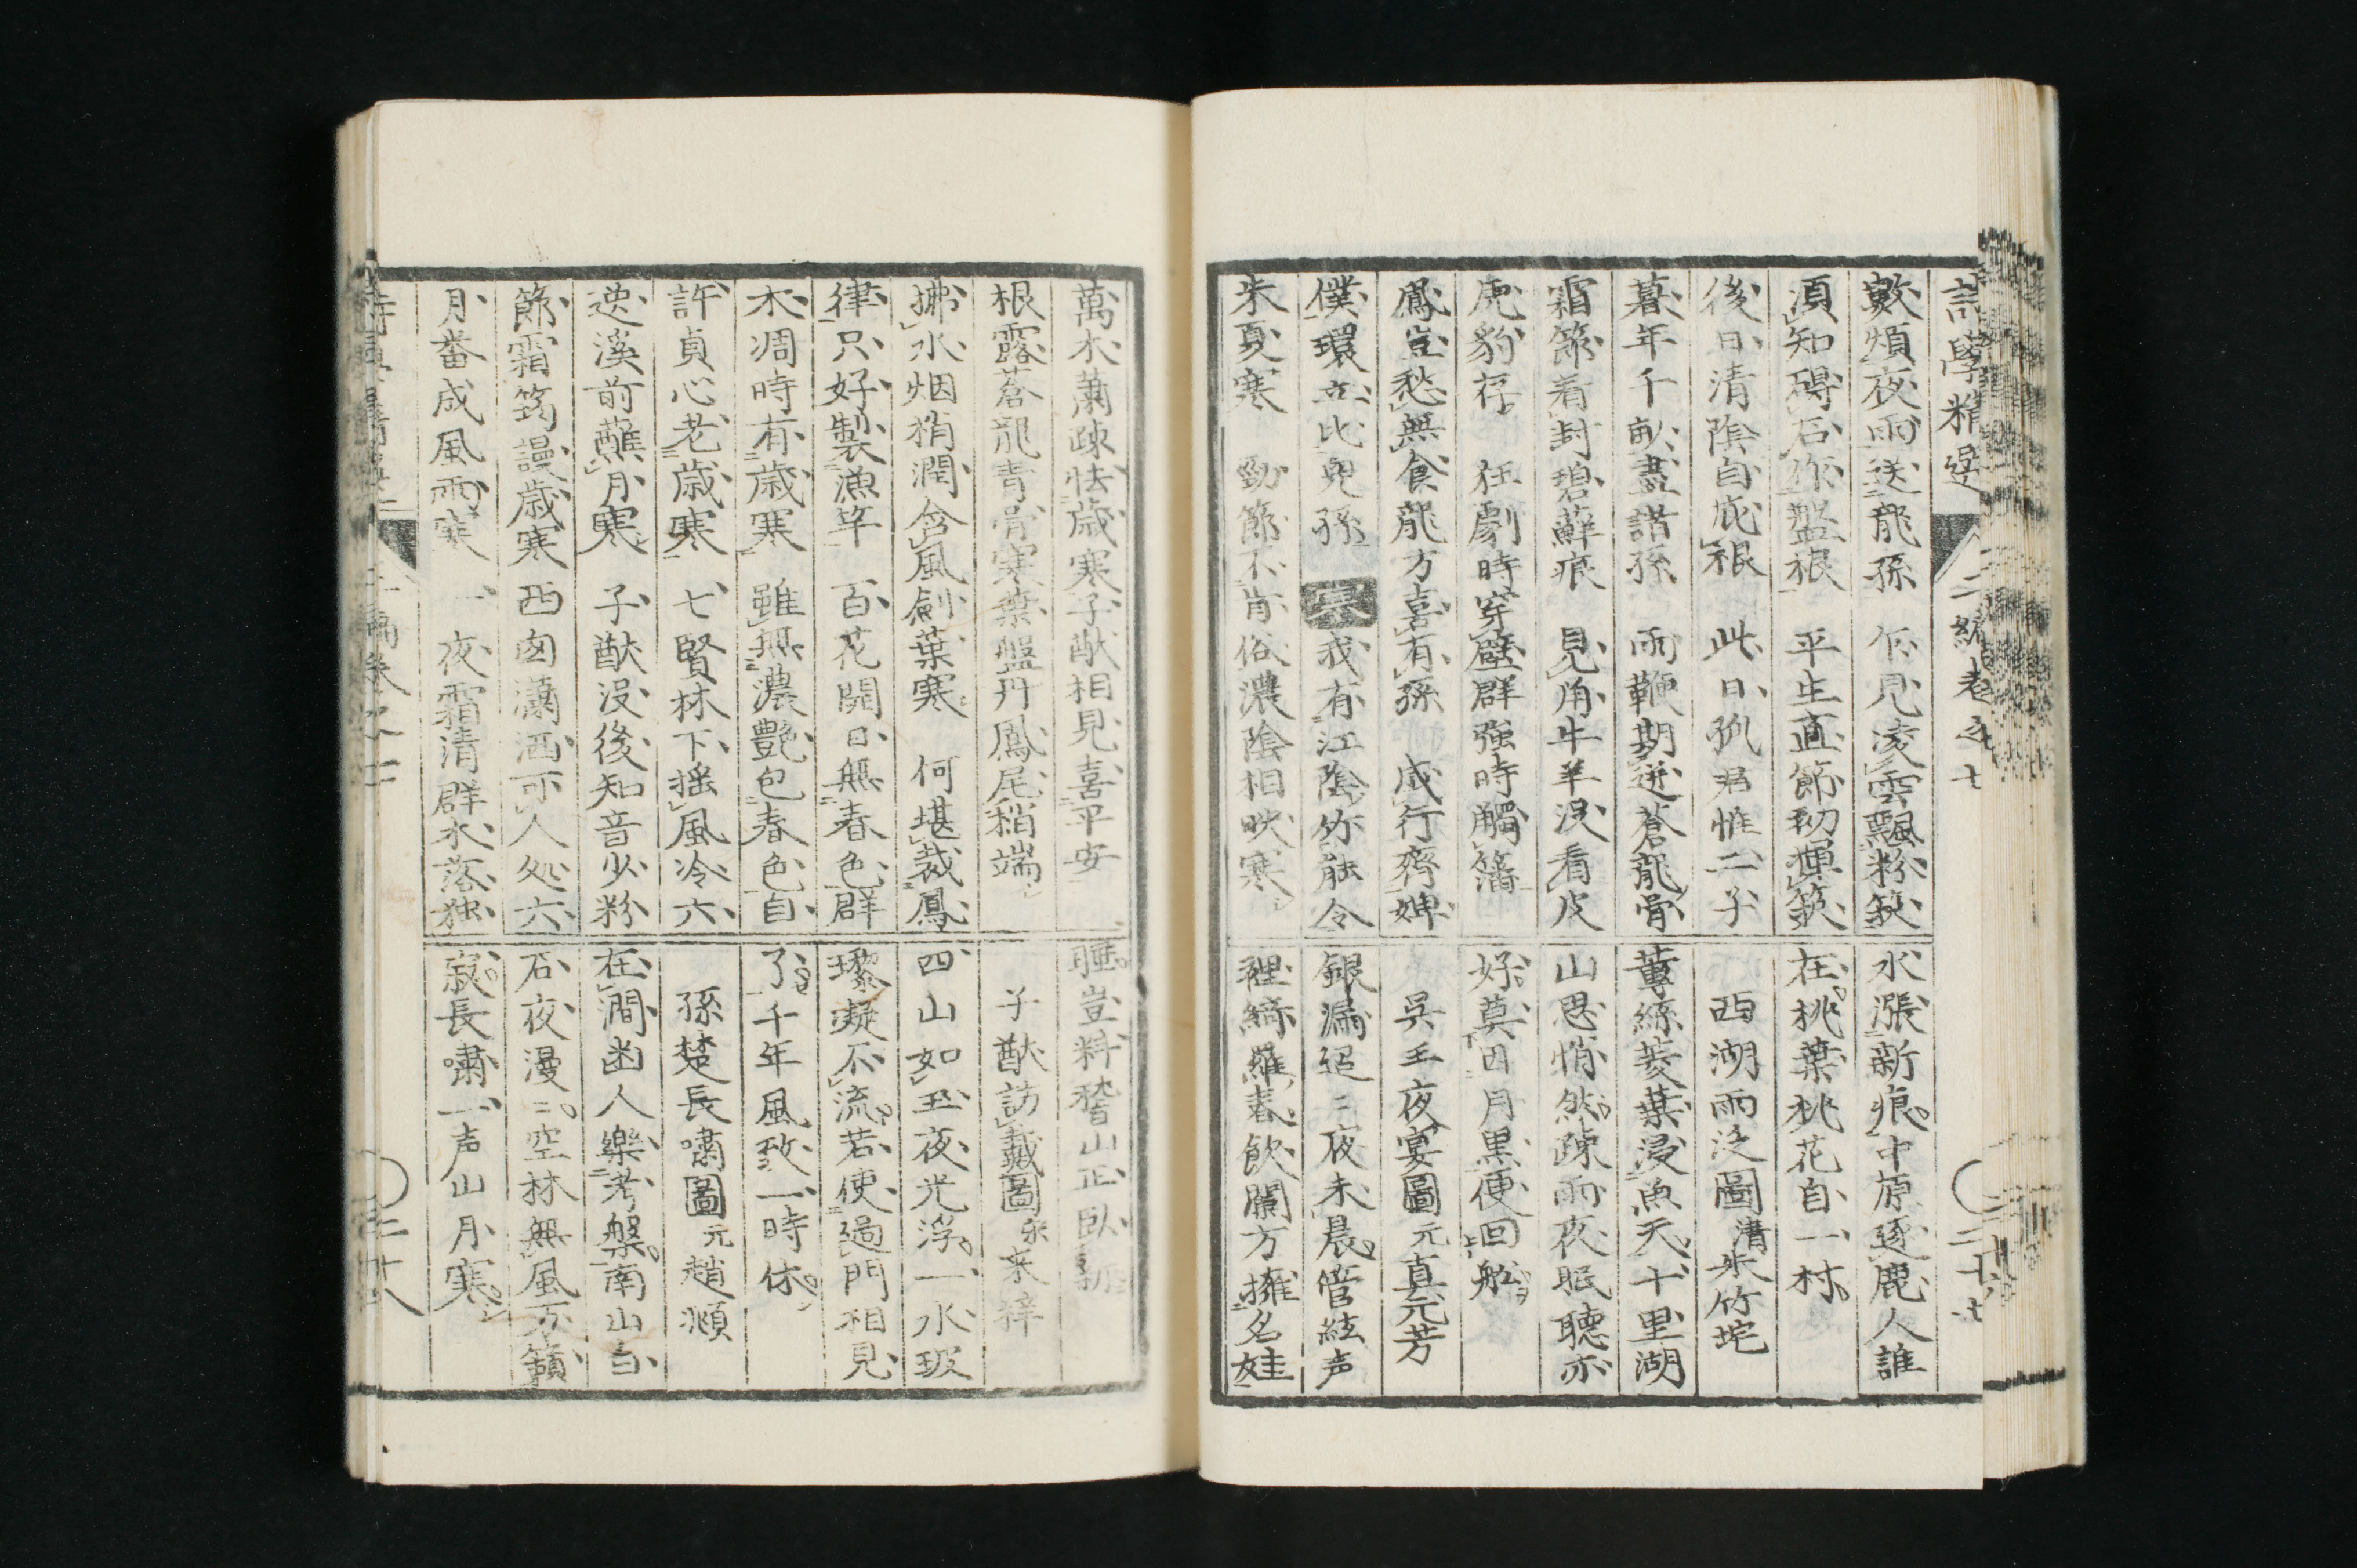 詩學精選 二編卷之七
數煩夜雨送龍孫 乍見凌雲飄粉籜
須知碍石作盤根 平生直節初彈籜
後日清陰自庇根 此日孤君惟二子
暮年千畝盡諸孫 雨鞭期迸蒼龍骨
霜節看封碧蘚痕 見角牛羊沒看皮
虎豹存 狂劇時穿壁群強時觸籓
鳳豈愁無食龍方喜有孫 成行齊婢
僕環立比兒孫 寒 我有江陰竹能令
朱夏寒 勁節不肯俗濃陰相映寒
水漲新痕中原逐鹿人誰
在桃葉桃花自一村
西湖雨泛圖 清 朱竹垞
蓴絲菱葉浸魚天十里湖
山思悄然疎雨夜眠聽亦
好莫因月黒便回舩
吳王夜宴圖 元 真元芳
銀漏迢〻夜未晨管絃声
裡綺羅春飲闌方擁名娃
萬水蕭疎怯歳寒子猷相見喜平安
根露蒼龍青骨寒葉盤丹鳳尾稍端
拂水烟梢潤含風劍葉寒 何堪裁鳳
律只好製漁竿 百花開日無春色群
木凋時有歳寒 雖無濃艶包春色自
許貞心老歳寒 七賢林下揺風冷六
逸溪前蘸月寒 子猷没後知音少粉
節霜筠謾歳寒 西囱瀟洒可人処六
月番成風雨寒 一夜霜清群水落独
睡豈料稽山正臥新
子猷訪戴圖 宋 来梓
四山如玉夜光浮一水玻
瓈凝不流若使過門相見
了千年風致一時休
孫楚長嘯圖 元 趙
在澗幽人樂考槃南山白
石夜漫〻空林無風万籟
寂長嘯一声山月寒